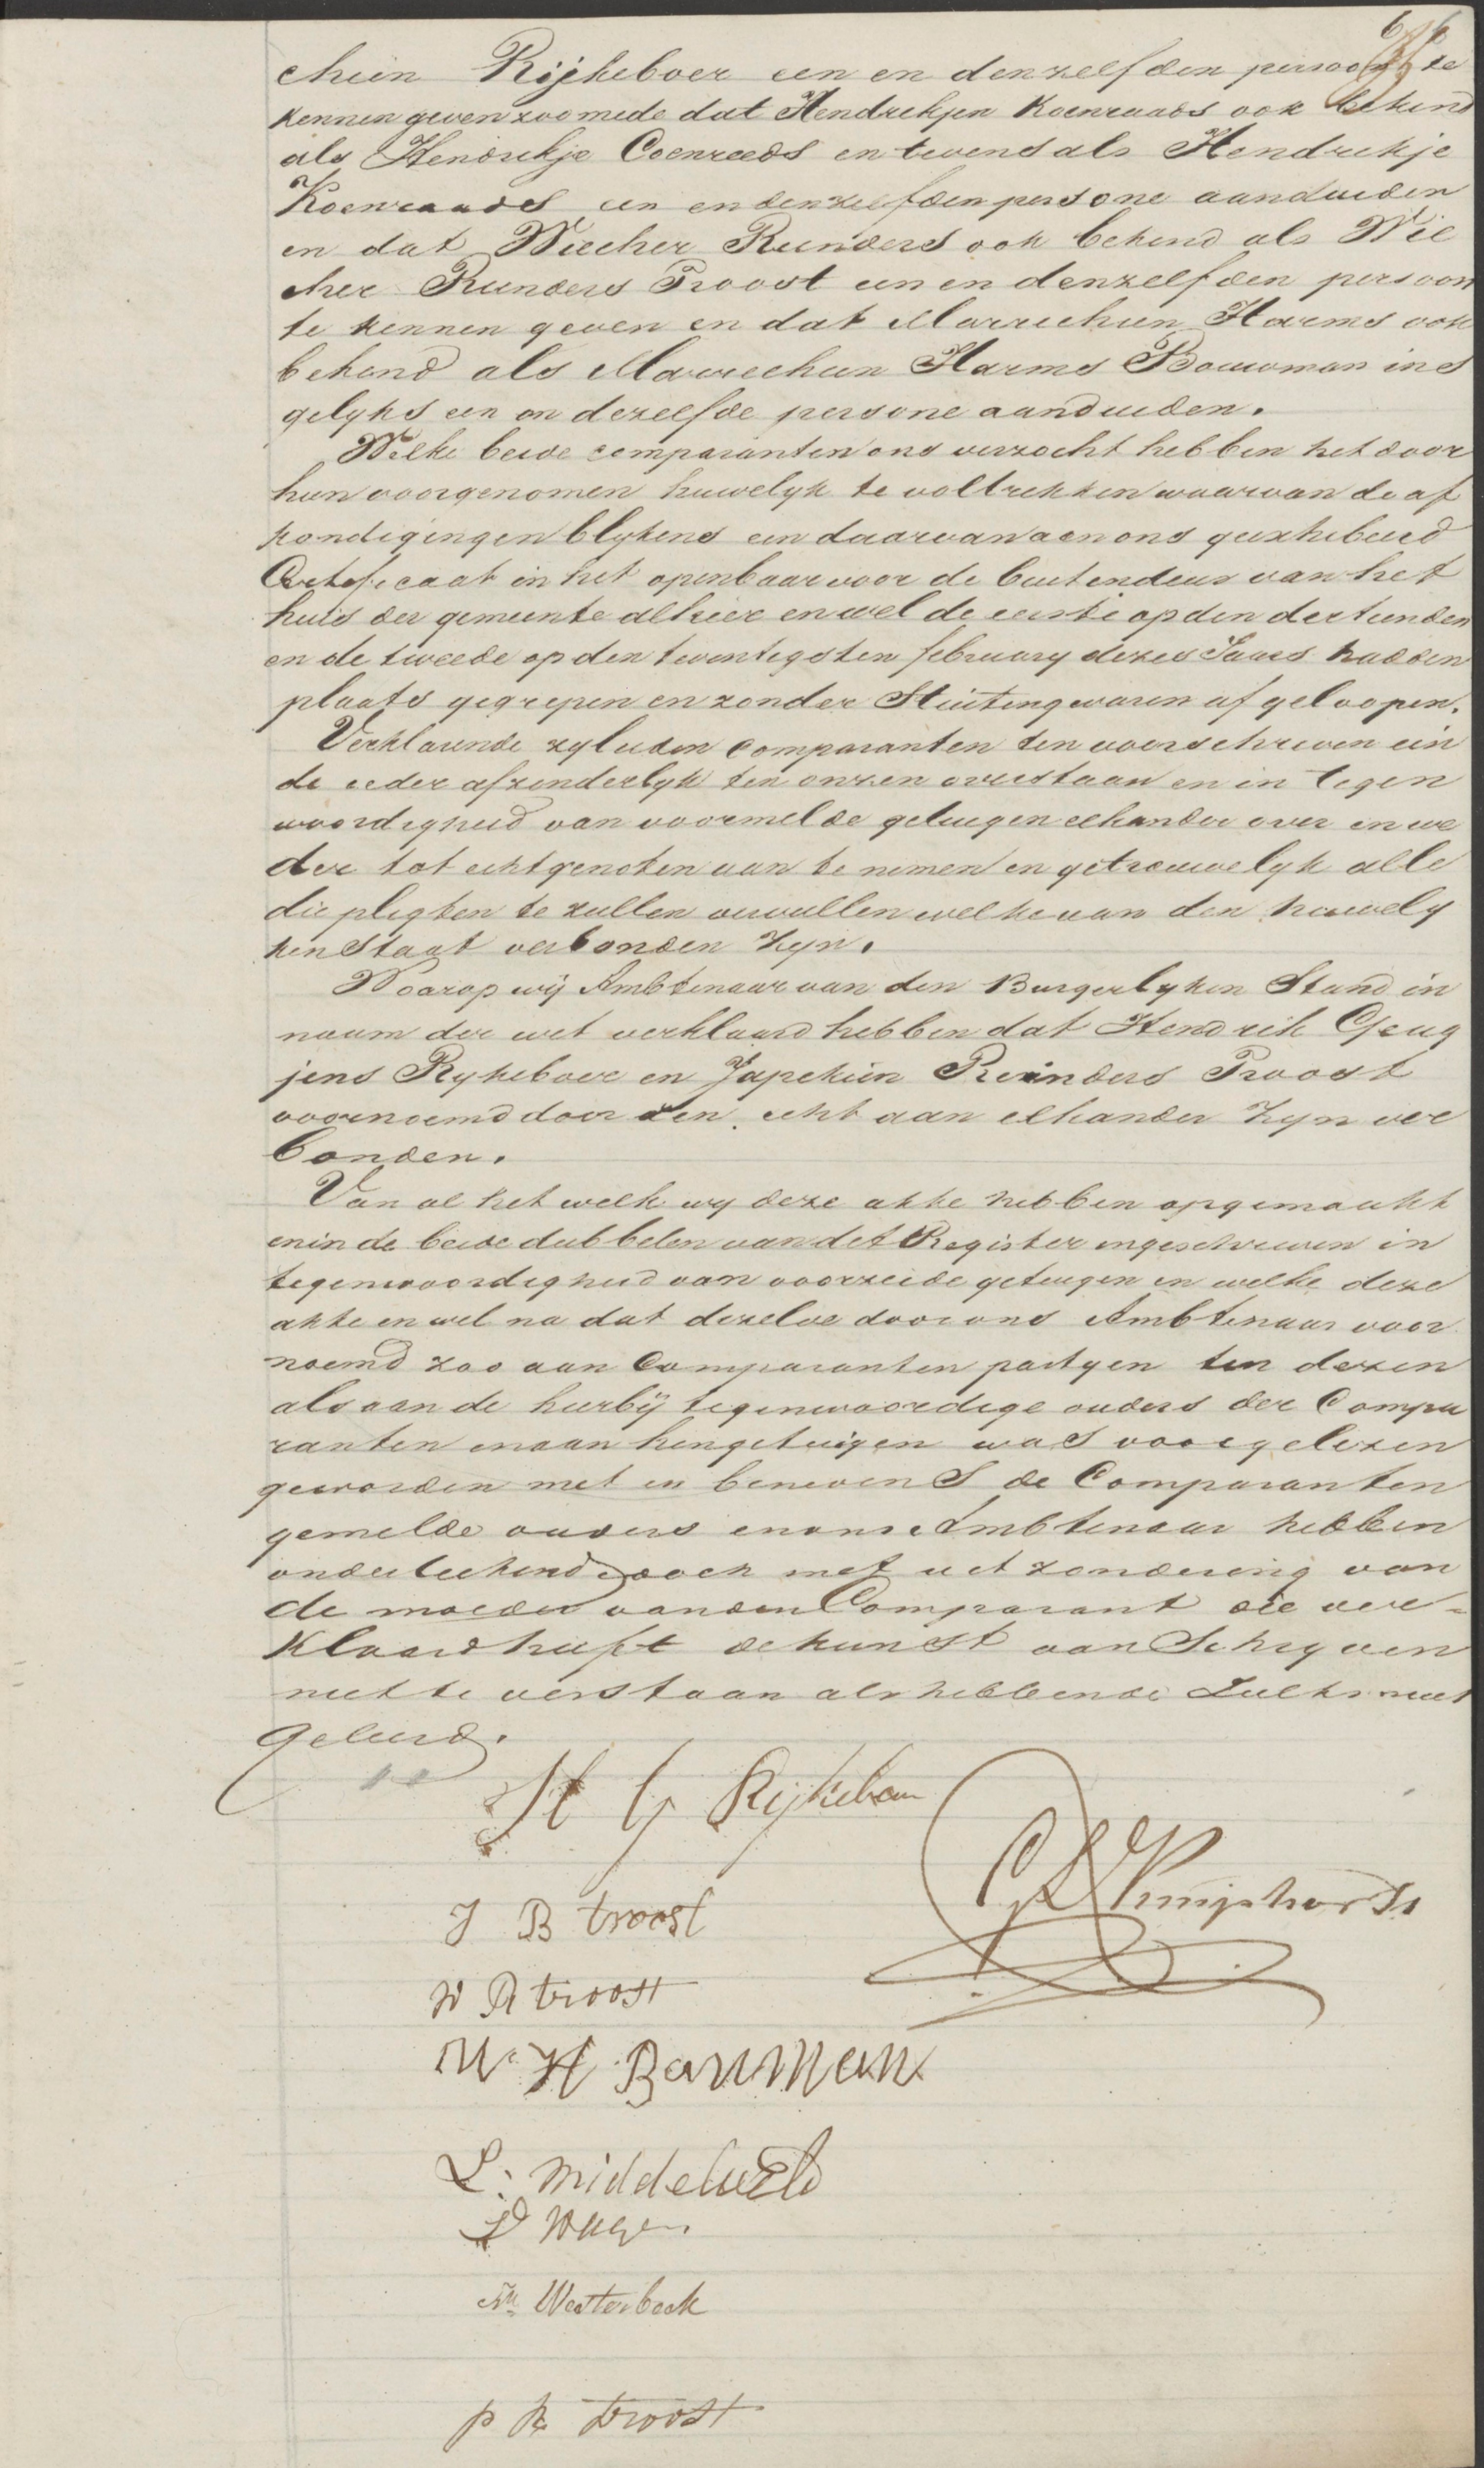 chien Rijkeboer een en denzelfden persoon te
kennen geven zoo mede dat Hendrekjen Koenraads ook bekend
als Hendrikje Coenreeds en tevens als Hendrekje
Koenraads een en denzelfden persone aanduiden
en dat Wiecher Reinders ook bekend als Wie
cher Reinders Troost een en denzelfden persoon
te kennen geven en dat Marrechien Harms ook
bekend als Marrechien Harms Bouwman ins
gelyks een en dezelfde persone aanduiden.
Welke beide comparanten ons verzocht hebben het door
hun voorgenomen huwelyk te voltrekken waarvan de af
kondigingen blykens een daarvan aan ons geexhibeerd
Certificaat in het openbaar voor de buitendeur van het
huis der gemeente alhier en wel de eerste op den dertienden
en de tweede op den twentigsten february dezes Jaars hadden
plaats gegrepen en zonder Stuiting waren afgeloopen.
Verklarende zyluden comparanten ten voorschreven ein
de ieder afzonderlyk ten onzen overstaan en in tegen
woordigheid van voormelde getuigen elkander over en we
der tot echtgenoten aan te nemen en getrouwelyk alle
die pligten te zullen vervullen welke aan den huwely
ken Staat verbonden zyn.
Waarop wij Ambtenaar van den Burgerlyken Stand in
naam der wet verklaard hebben dat Hendrik Geug
jens Rykeboer en Japchien Reinders Troost
voornoemd door den echt aan elkander zyn ver
bonden.
Van al het welk wy deze akte hebben opgemaakt
en in de beide dubbelen van det Register ingeschreven in
tegenwoordigheid van voorzeide getuigen en welke deze
akte en wel na dat dezelve door ons Ambtenaar voor
noemd zoo aan Comparanten partyen ten dezen
als aan de hierbij tegenwoordige ouders der Compa
ranten en aan hen getuigen was voorgelezen
geworden met en benevens de Comparanten
gemelde ouders en ons Ambtenaar hebben
onderteekend doch met uitzondering van
de moeder van den Comparant die ver-
klaard heeft de kunst van Schryven
niet te verstaan als hebbende zulks niet
geleerd.
H G Rijkeboer
J R troost
W R troost
M. H Bauman
L: Middelveld
Wagen
Westerbeek
p R troost